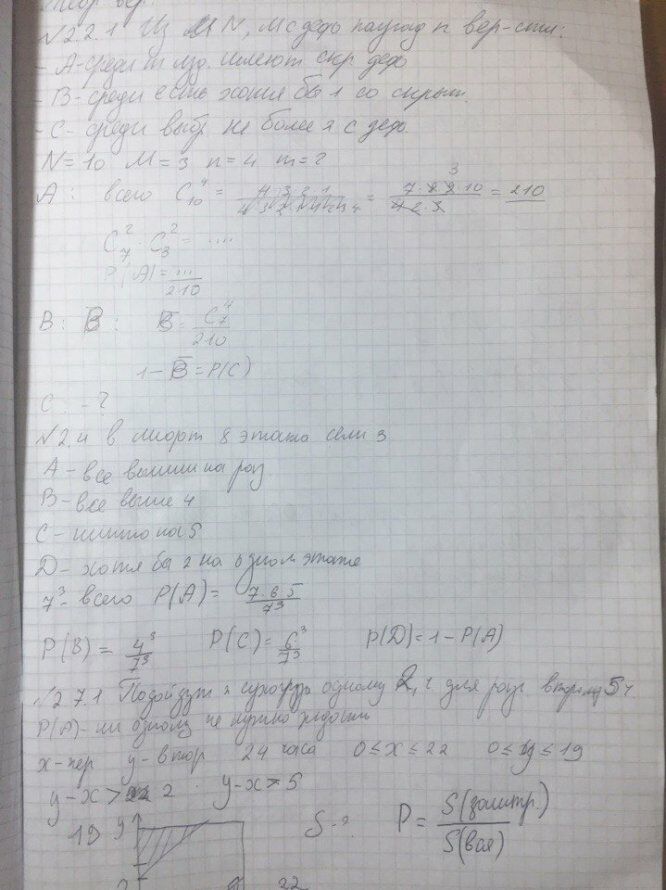 Теор вер.
N 2.2.1 Из N, М с деф наугад n вер-сти:
- А-среди m изд. имеют скр деф
- В-среди есть хотя бы 1 со скрыт.
- С- среди выбр не более 2 с деф.
N=10 M=3 n=4 m=2
А: всего C₁₀⁴ = = 7·8·9·10 / 4·2·3 = 210
3
C₇² · C₃² = ....
P(A) = ... / 210
B: B̄: B̄ = C₇⁴ / 210
1 - B̄ = P(C)
C - ?
N 2.4 в лифт 8 этажа сели 3
А - все вышли на раз
В - все выше 4
С - никто на 5
D - хотя бы 2 на одном этаже
7³ - всего P(A) = 7·6·5 / 7³
P(B) = 4³ / 7³ P(C) = 6³ / 7³ P(D) = 1 - P(A)
N 2.7.1 Подойдут 2 сухогруз одному 2 ч для разг второму 5 ч.
P(A) - ни одному не нужно ждать
x - пер y - втор 24 часа 0 ≤ x ≤ 22 0 ≤ y ≤ 19
y - x > 2 y - x > 5
19 y S - ? P = S(заштр.) / S(вся)
2 22